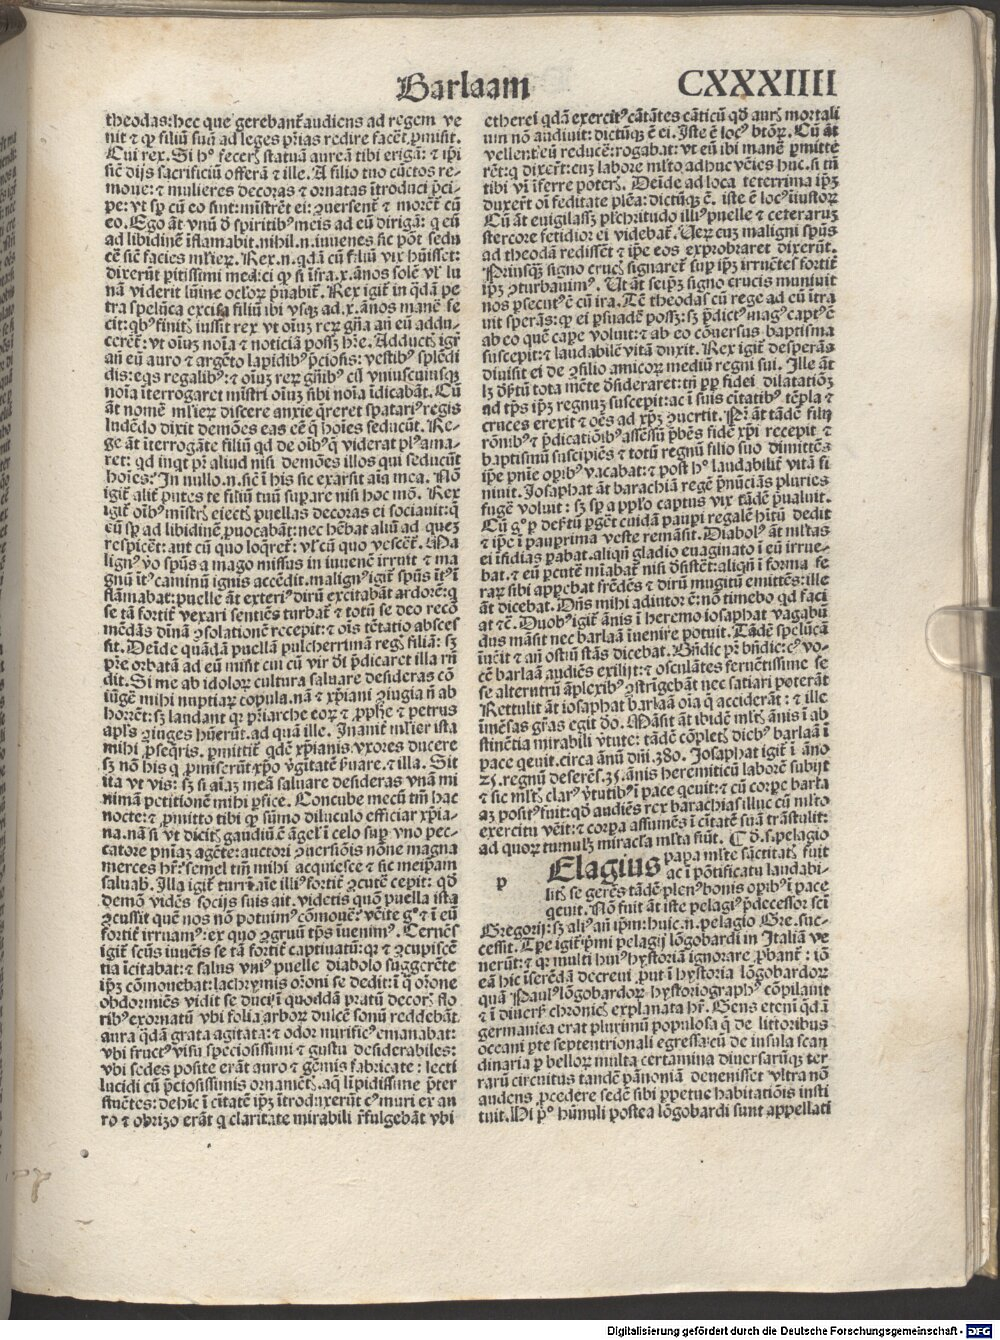 Barlaam
CXXXIIII
theodas: hec que gerebant̃ audiens ad regem ve
nit ⁊ ꝙ filiũ suũ ad leges p̃rias redire facẽt ꝓmisit.
Cui rex. Si hꝰ feceris statuã aureã tibi erigã: ⁊ ip̃i
sic̃ dijs sacrificiũ offerã ⁊ ille. A filio tuo cũctos re-
moue: ⁊ mulieres decoras ⁊ ornatas ĩtroduci p̃ci-
pe: vt sp̃ cũ eo sint: mĩstrẽt ei: ꝯuersent̃ ⁊ morẽt̃ cũ
eo. Ego ãt vnũ d̃ spiritibꝰ meis ad eũ dirigã: q̃ eũ
ad libidinẽ ĩflamabit. nihil .n. iuuenes sic põt sedu
cẽ sic̃ facies ml̃ieꝝ. Rex .n. qdã cũ filiũ vix hũisset:
dixerũt ꝑitissimi medici ꝙ si ĩfra .x. ãnos solẽ vl̃ lu
nã viderit lũine ocl̃oꝝ p̃uabit̃. Rex igit̃ in q̃dã pe
tra spelũca excisa filiũ ibi vsqꝫ ad .x. ãnos manẽ fe
cit: qbꝰ finit̃ iussit rex vt oĩuꝫ reꝝ gñа añ eũ addu-
cerẽt: vt oĩuꝫ noĩa ⁊ noticiã possꝫ h̃re. Adductis igr̃
añ eũ auro ⁊ argẽto lapidibꝰ p̃ciosis: vestibꝰ splẽdi
dis: eqs regalibꝰ: ⁊ oĩuꝫ reꝝ gñibꝰ cũ vniuscuiusqꝫ
noĩa ĩterrogaret mĩstri oĩuꝫ sibi noĩa ĩdicabãt. Cũ
ãt nomẽ ml̃ieꝝ discere anxie q̃reret spatariꝰ regis
ludẽdo dixit demões eas cẽ q̃ hoĩes seducũt. Re-
ge ãt ĩterrogãte filiũ qd de oĩbꝰ q̃ viderat plꝰ ama-
ret: qd inqt pr̃ aliud nisi demões illos qui seducũt
hoĩes: In nullo .n. sic̃ ĩ his sic exarsit aĩa mea. Nõ
igit̃ alit̃ putes te filiũ tuũ suꝑare nisi hoc mõ. Rex
igit̃ oĩbꝰ mĩstris eiectis puellas decoras ei sociauit: q̃
eũ sp̃ ad libidinẽ ꝓuocabãt: nec hẽbat aliũ ad queꝫ
respicẽt: aut cũ quo loq̃ret̃: vl̃ cũ quo vescẽt̃. Ma
lignꝰ ṽo spũs a mago missus in iuuenẽ irruit ⁊ ma
gnũ ĩtꝰ caminũ ignis accẽdit. malignꝰ igit̃ spũs ĩtꝰ ĩ
flãmabat: puelle ãt exteriꝰ dirũ excitabãt ardorẽ: q̃
se tã fortit̃ vexari sentiẽs turbat̃ ⁊ totũ se deo recõ
mẽdãs diuĩã ꝯsolationẽ recepit: ⁊ oĩs tẽtatio absces
sit. Deĩde quãdã puellã pulcherrimã regis filiã: sꝫ
pr̃e orbatã ad eũ misit cui cũ vir di p̃dicaret illa rñ
dit. Si me ab idoloꝝ cultura saluare desideras cõ
iũgẽ mihi nuptiaꝝ copula. nã ⁊ xp̃iani ꝯiugia ñ ab
horrẽt: sꝫ laudant qꝛ pr̃iarche eoꝝ ⁊ ꝓphẽ ⁊ petrus
apl̃s ꝯiuges hũerũt. ad quã ille. Inanit̃ ml̃ier ista
mihi ꝓseq̃ris. ꝑmittit̃ qdẽ xp̃ianis vxores ducere
sꝫ nõ his q̃ ꝓmiserũt xp̃o ṽgitatẽ ẜuare. ⁊ illa. Sit
ita vt vis: sꝫ si aĩaꝫ meã saluare desideras vnã mi
nimã petitionẽ mihi ꝑfice. Concube mecũ tm̃ hac
nocte: ⁊ ꝓmitto tibi ꝙ sũmo diluculo efficiar xp̃ia-
na. nã si vt dicitis gaudiũ ẽ ãgel̃ ĩ celo suꝑ vno pec-
catore pñiaꝫ agẽte: auctori ꝯuersiõis nõne magna
merces hr̃: semel tm̃ mihi acquiesce ⁊ sic meip̃am
saluab̃. Illa igit̃ turrĩ aĩe illiꝰ fortit̃ ꝯcutẽ cepit: qd̃
demõ vidẽs socijs suis ait. videtis quõ puella ista
ꝯcussit quẽ nos nõ potuimꝰ cõmouẽ: vẽite gͦ ⁊ ĩ eũ
fortit̃ irruamꝰ: ex quo ꝯgruũ tp̃s ĩuenimꝰ. Cernẽs
igit̃ scũs iuuẽis se tã fortit̃ captiuatũ: qꝛ ⁊ ꝯcupiscẽ
tia ĩcitabat: ⁊ salus vniꝰ puelle diabolo suggerẽte
ip̃ꝫ cõmouebat: lachrymis orõni se dedit: ĩ q̃ orõne
obdormiẽs vidit se duci ĩ quoddã pratũ decoris flo
ribꝰ exornatũ vbi folia arboꝝ dulcẽ sonũ reddebãt
aura q̃dã grata agitata: ⁊ odor mirificꝰ emanabat:
vbi fructꝰ visu speciosissimi ⁊ gustu desiderabiles:
vbi sedes posite erãt auro ⁊ gẽmis fabricate: lecti
lucidi cũ p̃ciosissimis ornamẽtis. aq̃ lĩpidissime p̃ter
fluẽtes: dehĩc ĩ cĩtatẽ ip̃ꝫ ĩtroduxerũt cꝰ muri ex au
ro ⁊ obrizo erãt q̃ claritate mirabili r̃fulgebãt vbi
etherei qdã exercitꝰ cãtãtes cãticũ qd̃ auris mortali
um nõ audiuit: dictũqꝫ ẽ ei. Iste ẽ locꝰ btõꝝ. Cũ ãt
vellent eũ reducẽ: rogabat: vt eũ ibi manẽ ꝑmitte
rẽt: q̃ dixert̃: cuꝫ labore ml̃to adhuc vẽies huc. si tñ
tibi vĩ ĩferre poteris. Deĩde ad loca teterrima ip̃ꝫ
duxert̃ oĩ feditate plẽa: dictũqꝫ ẽ. iste ẽ locꝰ iiustoꝝ
Cũ ãt euigilassꝫ pl̃chritudo illiꝰ puelle ⁊ ceteraruꝫ
stercore fetidior ei videbat̃. Ueꝝ cuꝫ maligni spũs
ad theodã redissẽt ⁊ ip̃e eos exprobraret dixerũt.
Priusqꝫ signo crucis signaret̃ suꝑ ip̃ꝫ irruẽtes fortit̃
ip̃ꝫ ꝯturbauimꝰ. Ut ãt seip̃ꝫ signo crucis muniuit
nos ꝑsecutꝰ ẽ cũ ira. Tẽ theodas cũ rege ad eũ ĩtra
uit sperãs: ꝙ ei ꝑsuadẽ possꝫ: sꝫ p̃dictꝰ magꝰ captꝰ ẽ
ab eo quẽ cape voluit: ⁊ ab eo cõuersus baptisma
suscepit: ⁊ laudabilẽ vitã duxit. Rex igit̃ desperãs
diuisit ei de ꝯsilio amicoꝝ mediũ regni sui. Ille ãt
lꝫ dẽrtũ tota mẽte dẽsideraret: tñ ꝓp̃ fidei dilatatiõꝫ
ad tp̃s ip̃ꝫ regnuꝫ suscepit: ac ĩ suis cĩtatibꝰ tẽpla ⁊
cruces erexit ⁊ oẽs ad xp̃ꝫ ꝯuertit. Pr̃ ãt tãdẽ filij
rõnibꝰ ⁊ p̃dicatiõibꝰ assẽsũ p̃bẽs fidẽ xp̃i recepit ⁊
baptismũ suscipiẽs ⁊ totũ regnũ filio suo dimittẽs
ip̃e pñie oꝑibꝰ vacabat: ⁊ post hꝰ laudabilit̃ vitã fi
niuit. Iosaphat ãt barachiã regẽ ꝓnũciãs pluries
fugẽ voluit: sꝫ sp̃ a ppl̃o captus vix tãdẽ p̃ualuit.
Cũ gͦ ꝑ dertũ ꝑgẽt cuidã pauꝑi regalẽ hĩtũ dedit
⁊ ip̃e ĩ pauꝑima veste remãsit. Diabolꝰ ãt ml̃tas
ei ĩsidias parabat. aliqñ gladio euaginato ĩ eũ irrue-
bat. ⁊ eũ ꝑcutẽ miabat̃ nisi dẽsistẽt: aliqñ ĩ forma fe
raꝝ sibi aꝑrebat frẽdẽs ⁊ dirũ mugitũ emittẽs: ille
ãt dicebat. Dñs mihi adiutor ẽ: nõ timebo qd faci
at ⁊c̃. Duobꝰ igit̃ ãnis ĩ heremo iosaphat vagabũ
dus mãsit nec barlaã ĩuenire potuit. Tãdẽ spelũcã
ĩuẽit ⁊ añ ostiũ stãs dicebat. Bñdic pr̃ bñdic: cꝰ vo-
cẽ barlaã audiẽs exilijt: ⁊ osculãtes feruẽtissime se
se alterutrũ ãplexibꝰ ꝯstrĩgebãt nec satiari poterãt
Rettulit ãt iosaphat barlaã oĩa q̃ acciderãt: ⁊ ille
ĩmẽsas gr̃as egit dõ. Mãsit ãt ibidẽ ml̃tis ãnis ĩ ab
stinẽtia mirabili ṽtute: tãdẽ cõpletis diebꝰ barlaã ĩ
pace qeuit. circa ãnũ dñi .380. Iosaphat igit̃ ĩ ãno
25. regnũ deserẽs .35. ãnis heremiticũ laborẽ subijt
⁊ sic ml̃tis clarꝰ ṽtutibꝰ ĩ pace qeuit: ⁊ cũ corꝑe barla
aꝫ positꝰ fuit: qd̃ audiẽs rex barachias illuc cũ ml̃to
exercitu vẽit: ⁊ corꝑa assumẽs ĩ cĩtatẽ suã trãstulit:
ad quoꝝ tumulꝫ miracl̃a ml̃ta fiũt. ¶ D̃ .s. pelagio
p
Elagius papa ml̃te sãctitatis fuit
ac ĩ põtificatu laudabi-
lit̃ se gerẽs tãdẽ plenꝰ bonis oꝑibꝰ ĩ pace
qeuit. Nõ fuit ãt iste pelagiꝰ p̃decessor sci
Gregorij: sꝫ aliꝰ añ ip̃m: huic .n. pelagio Gre. suc-
cessit. Tp̃e igit̃ ip̃mi pelagij lõgobardi in Italiã ve
nerũt: ⁊ qꝛ multi huiꝰ hystoriã ignorare ꝓbant̃: iõ
eã hic ĩserẽdã decreui ꝓut ĩ hystoria lõgobardoꝝ
quã Paulꝰ lõgobardoꝝ hystoriographꝰ cõpilauit
⁊ ĩ diuersis chronicis explanata hr̃. Gens eteni q̃dã
germanica erat plurimũ populosa q̃ de littoribus
oceani ꝑte septentrionali egressa: cũ de insula scan
dinaria ꝑ belloꝝ multa certamina diuersarũqꝫ ter
rarũ circuitus tandẽ pãnoniã deuenisset vltra nõ
audens ꝓcedere sedẽ sibi ꝑpetue habitatiõis insti
tuit. Hi pͦ hũnuli postea lõgobardi sunt appellati
Digitalisierung gefördert durch die Deutsche Forschungsgemeinschaft - DFG